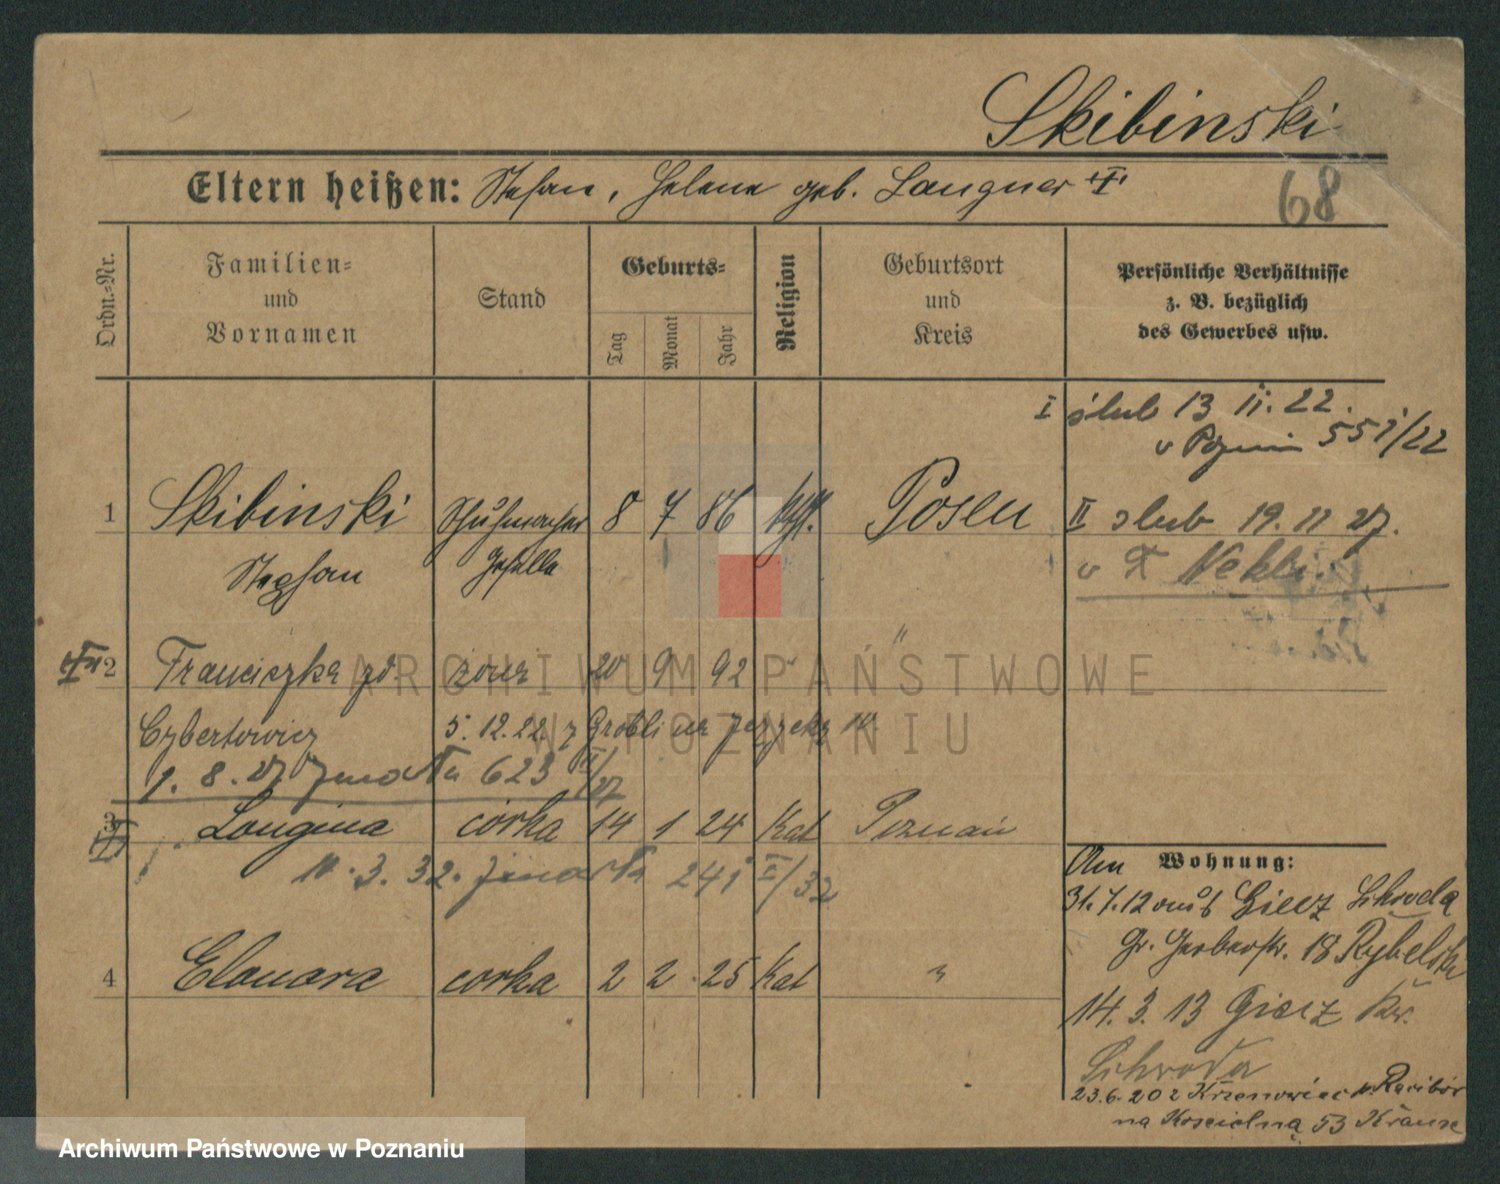 Skibinski
Eltern heißen: Stefan, Helene geb. Langner
68
Ordn.=Nr.
Familien= und Vornamen
Stand
Geburts=
Tag
Monat
Jahr
Religion
Geburtsort und Kreis
Persönliche Verhältnisse
z. B. bezüglich
des Gewerbes usw.
I ślub 13 11. 22.
v 551/22
1 Skibinski Schuhmacher 8 7 86 Kath. Posen
II slub 19. 11 27.
Stephan Geselle
v Nekli
2 Franciszka zd. żona 20 9 92 "
Cybertowicz 5. 12. 22. z Grobli na Jeżycką 10
1. 8. 27 zmarła 623 II/27
3 Longina córka 14 1 24 Kat Poznań
11. 3. 32. zmarła 241 II/32
4 Elonora corka 2 2. 25 Kat "
Wohnung:
31. 7. 12 Giecz Schroda
Gr. Gerberstr. 18
14. 3. 13 Giecz Kr.
Schroda
23. 6. 20 z Krzanowiec p. Racibór
na Kościelną 53 Krause
ARCHIWUM PAŃSTWOWE
W POZNANIU
Archiwum Państwowe w Poznaniu